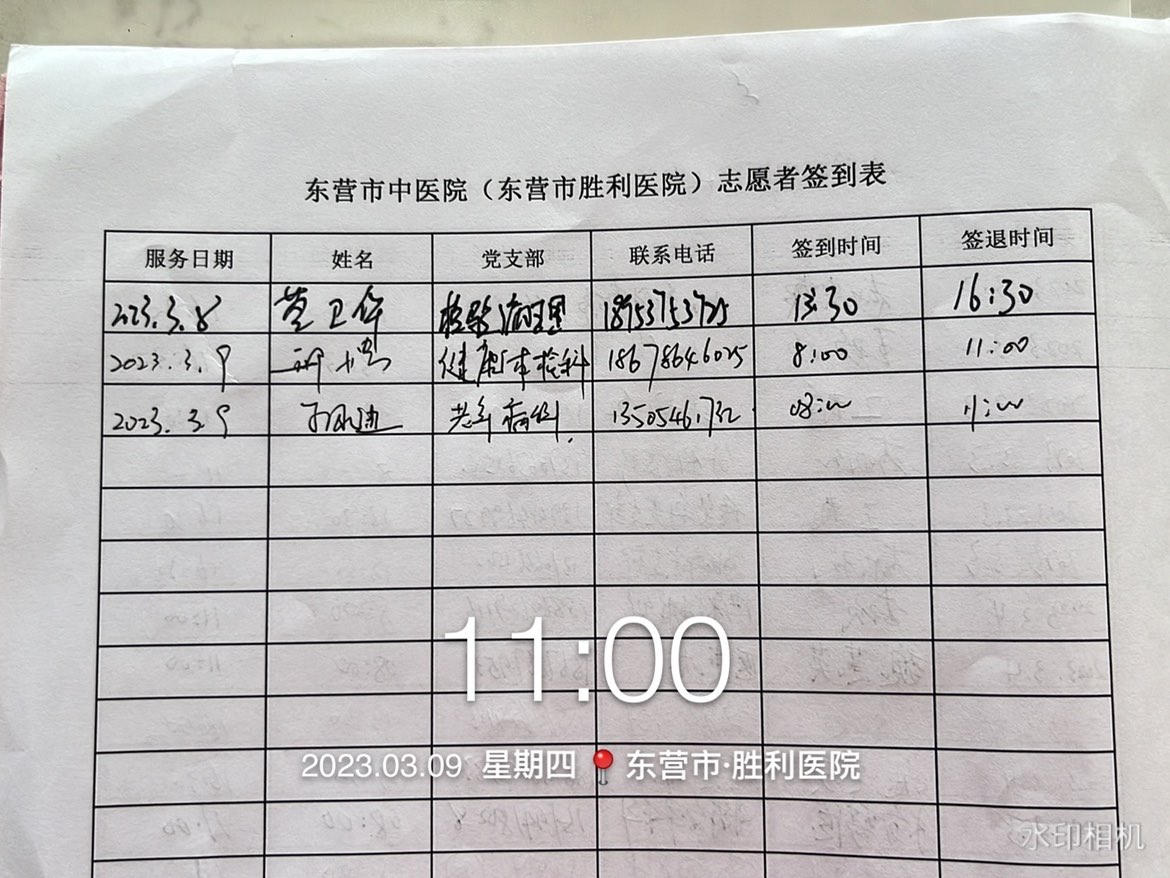 东营市中医院（东营市胜利医院）志愿者签到表
服务日期 姓名 党支部 联系电话 签到时间 签退时间
2023.3.8 卫华 检验病理 18953753725 13:30 16:30
2023.3.9 健康体检科 18678646025 8:00 11:00
2023.3.9 老年病科 13505461732 08:00 11:00
11:00
2023.03.09 星期四 东营市·胜利医院
水印相机